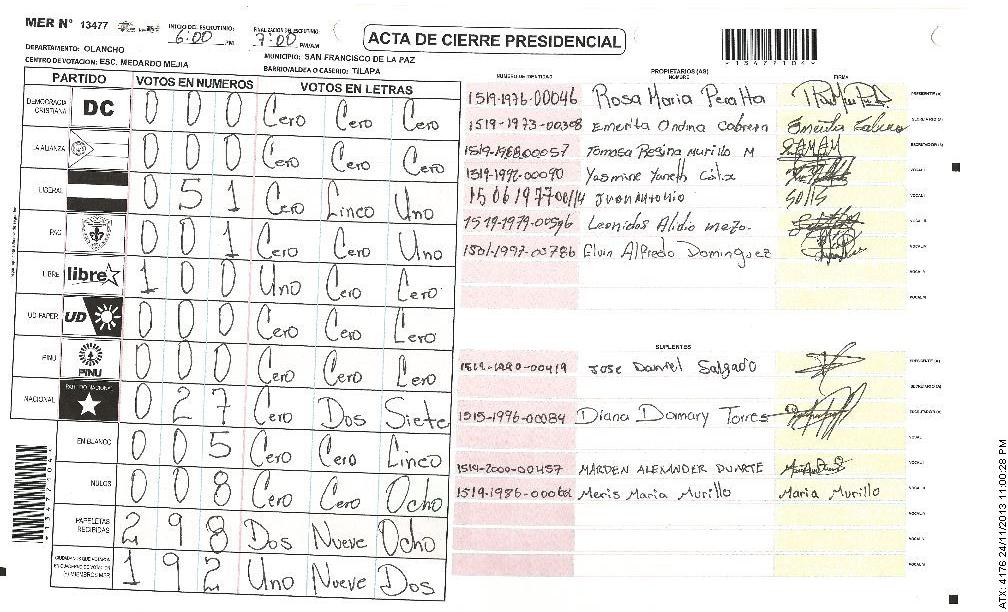 MER N° 13477 INICIO DEL ESCRUTINIO: 6:00 PM FINALIZACIÓN ESCRUTINIO: 7:00 PM/AM
ACTA DE CIERRE PRESIDENCIAL
*13477104*
DEPARTAMENTO: OLANCHO MUNICIPIO: SAN FRANCISCO DE LA PAZ
CENTRO DE VOTACION: ESC. MEDARDO MEJIA BARRIO/ALDEA O CASERIO: TILAPA
PARTIDO VOTOS EN NUMEROS VOTOS EN LETRAS
DEMOCRACIA CRISTIANA DC 0 0 0 Cero Cero Cero
LA ALIANZA 0 0 0 Cero Cero Cero
LIBERAL 0 5 1 Cero Cinco Uno
PAC 0 0 1 Cero Cero Uno
LIBRE libre 1 0 0 Uno Cero Cero
UD FAPER UD 0 0 0 Cero Cero Cero
PINU PINU 0 0 0 Cero Cero Cero
NACIONAL PARTIDO NACIONAL 0 2 7 Cero Dos Siete
EN BLANCO 0 0 5 Cero Cero Cinco
NULOS 0 0 8 Cero Cero Ocho
PAPELETAS RECIBIDAS 2 9 8 Dos Nueve Ocho
1 9 2 Uno Nueve Dos
*13477104*
PROPIETARIOS (AS)
NUMERO DE IDENTIDAD NOMBRE FIRMA
1519-1976-00046 Rosa Maria Peralta PRESIDENTE (A)
1519-1973-00308 Emerita Ondina Cabrera SECRETARIO (A)
1519-1988-00057 Tomasa Regina Murillo M ESCRUTADOR (A)
1519-1992-00090 Yasmine Yaneth Cálix VOCAL I
1506197700114 Juan Antonio Solis VOCAL II
1519-1979-00596 Leonidas Alidio mezo. VOCAL III
1501-1997-00786 Elvin Alfredo Dominguez VOCAL IV
VOCAL V
VOCAL VI
SUPLENTES
Jose Daniel Salgado PRESIDENTE (A)
SECRETARIO (A)
1515-1996-00084 Diana Damary Torres ESCRUTADOR (A)
VOCAL I
1519-2000-00457 MARDEN ALEXANDER DUARTE VOCAL II
Meris Maria Murillo Maria Murillo VOCAL III
VOCAL IV
VOCAL V
VOCAL VI
ATX: 4176 24/11/2013 11:00:28 PM